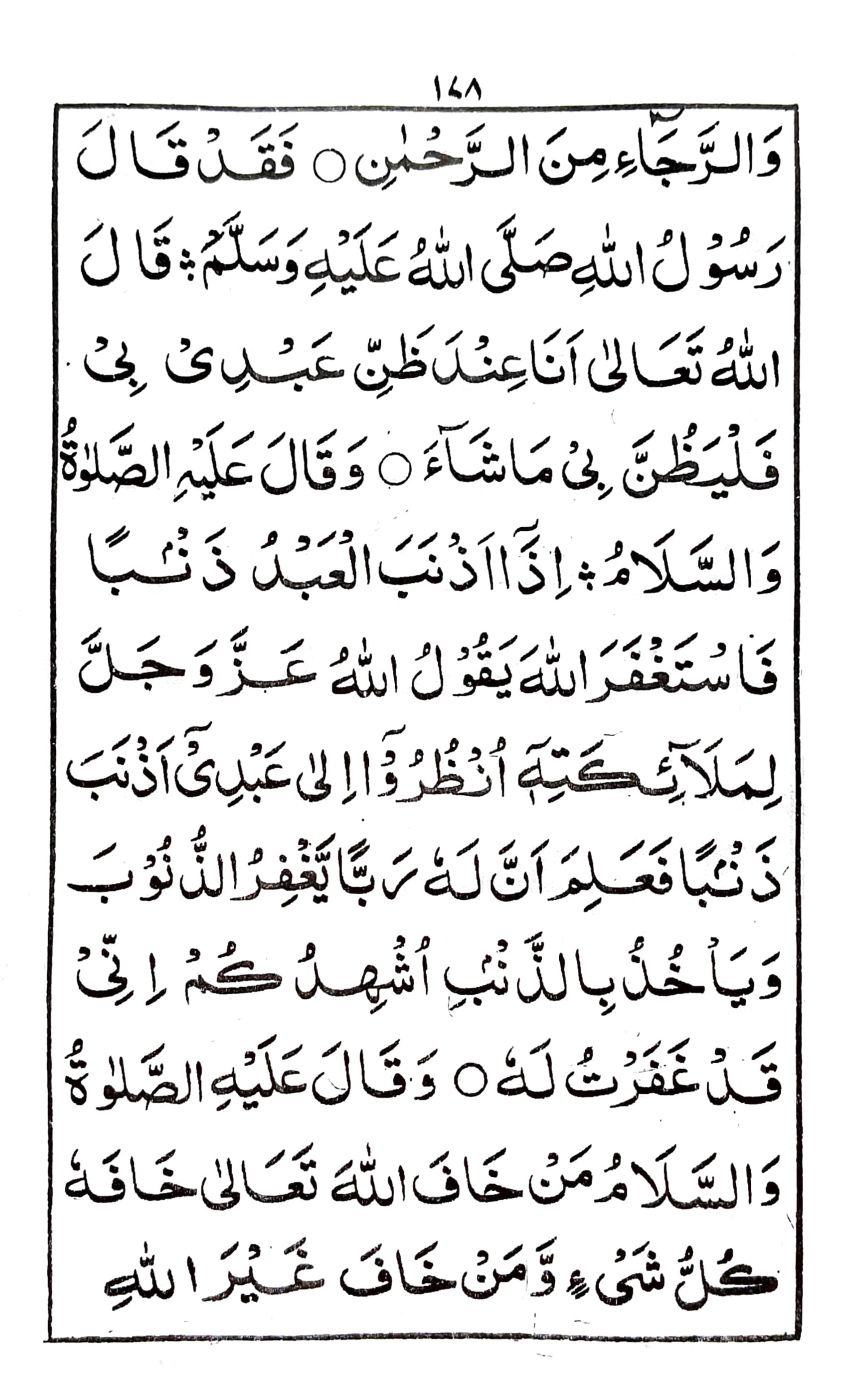 ١٤٨
وَالرَّجَآءِ مِنَ الرَّحْمٰنِ ○ فَقَدْ قَالَ
رَسُوْلُ اللهِ صَلَّى اللهُ عَلَيْهِ وَسَلَّمَ ؞ قَالَ
اللهُ تَعَالٰى اَنَا عِنْدَ ظَنِّ عَبْدِىْ بِىْ
فَلْيَظُنَّ بِىْ مَا شَآءَ ○ وَقَالَ عَلَيْهِ الصَّلٰوةُ
وَالسَّلَامُ ؞ اِذَآ اَذْنَبَ الْعَبْدُ ذَنْۢبًا
فَاسْتَغْفَرَ اللهَ يَقُوْلُ اللهُ عَزَّ وَجَلَّ
لِمَلَآئِكَتِهٖٓ اُنْظُرُوْٓا اِلٰى عَبْدِىْٓ اَذْنَبَ
ذَنْۢبًا فَعَلِمَ اَنَّ لَهٗ رَبًّا يَّغْفِرُ الذُّنُوْبَ
وَيَاْخُذُ بِالذَّنْۢبِ اُشْهِدُكُمْ اِنِّىْ
قَدْ غَفَرْتُ لَهٗ ○ وَقَالَ عَلَيْهِ الصَّلٰوةُ
وَالسَّلَامُ مَنْ خَافَ اللهَ تَعَالٰى خَافَهٗ
كُلُّ شَىْءٍ وَّمَنْ خَافَ غَيْرَ اللهِ